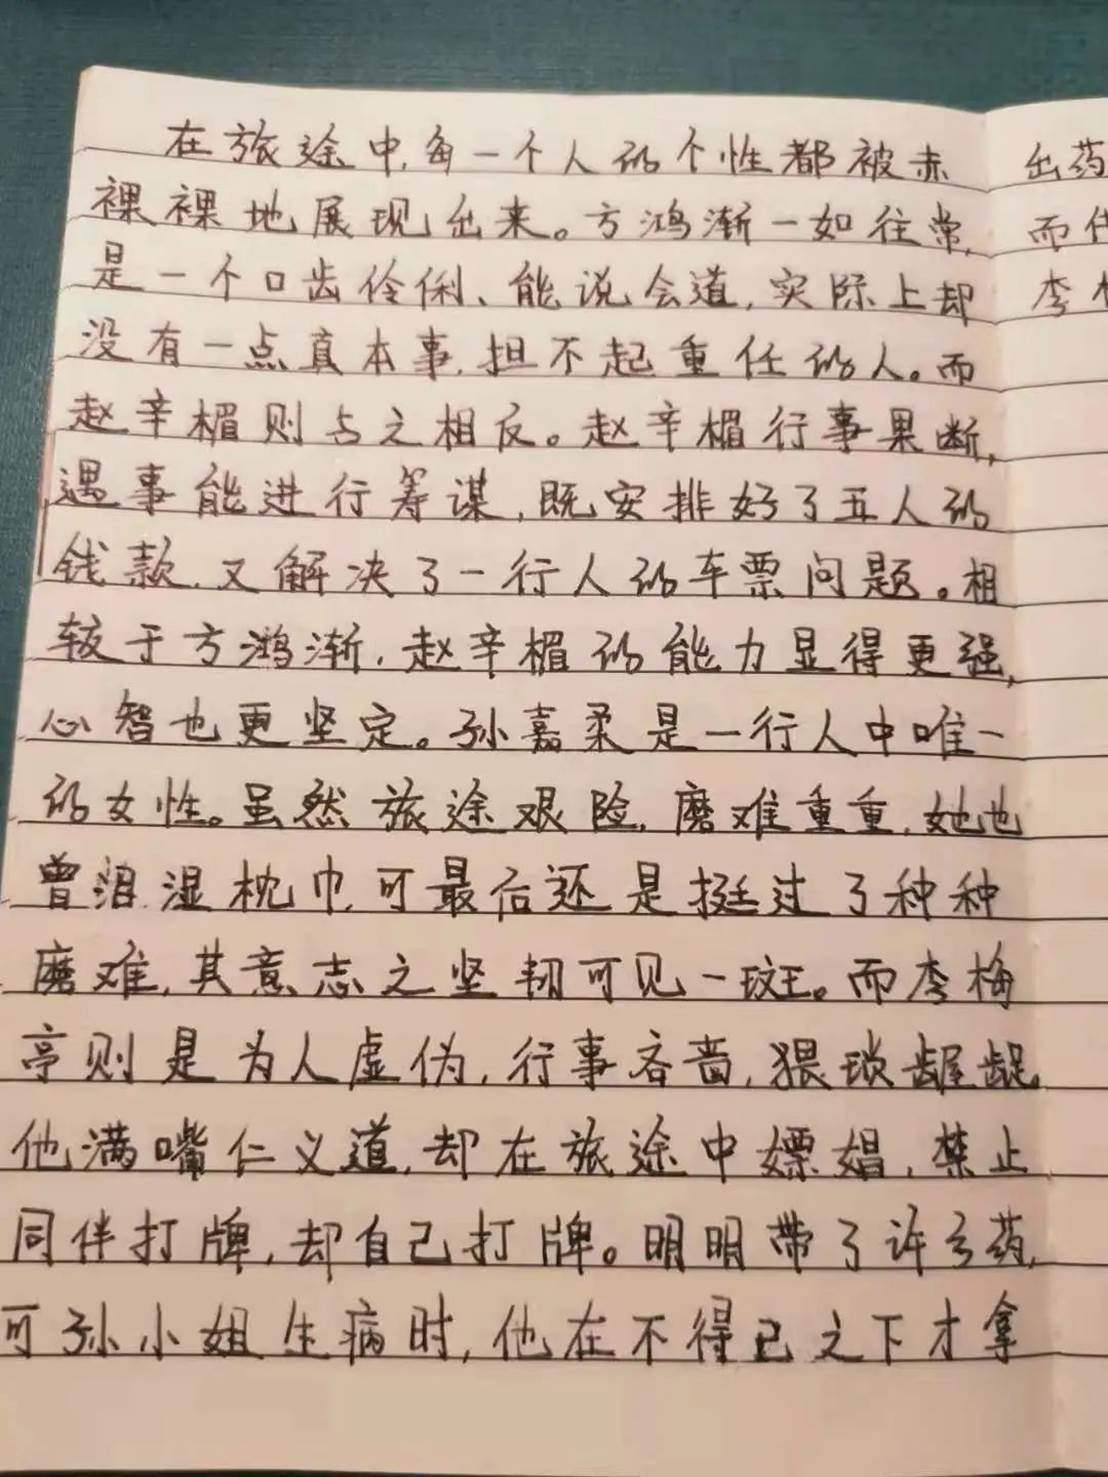 在旅途中,每一个人的个性都被赤
裸裸地展现出来。方鸿渐一如往常,
是一个口齿伶俐、能说会道,实际上却
没有一点真本事,担不起重任的人。而
赵辛楣则与之相反。赵辛楣行事果断,
遇事能进行筹谋,既安排好了五人的
钱款,又解决了一行人的车票问题。相
较于方鸿渐,赵辛楣的能力显得更强,
心智也更坚定。孙嘉柔是一行人中唯一
的女性。虽然旅途艰险,磨难重重,她也
曾泪湿枕巾,可最后还是挺过了种种
磨难,其意志之坚韧可见一斑。而李梅
亭则是为人虚伪,行事吝啬,猥琐龌龊
他满嘴仁义道,却在旅途中嫖娼,禁止
同伴打牌,却自己打牌。明明带了许多药,
可孙小姐生病时,他在不得已之下才拿
出药
而
李